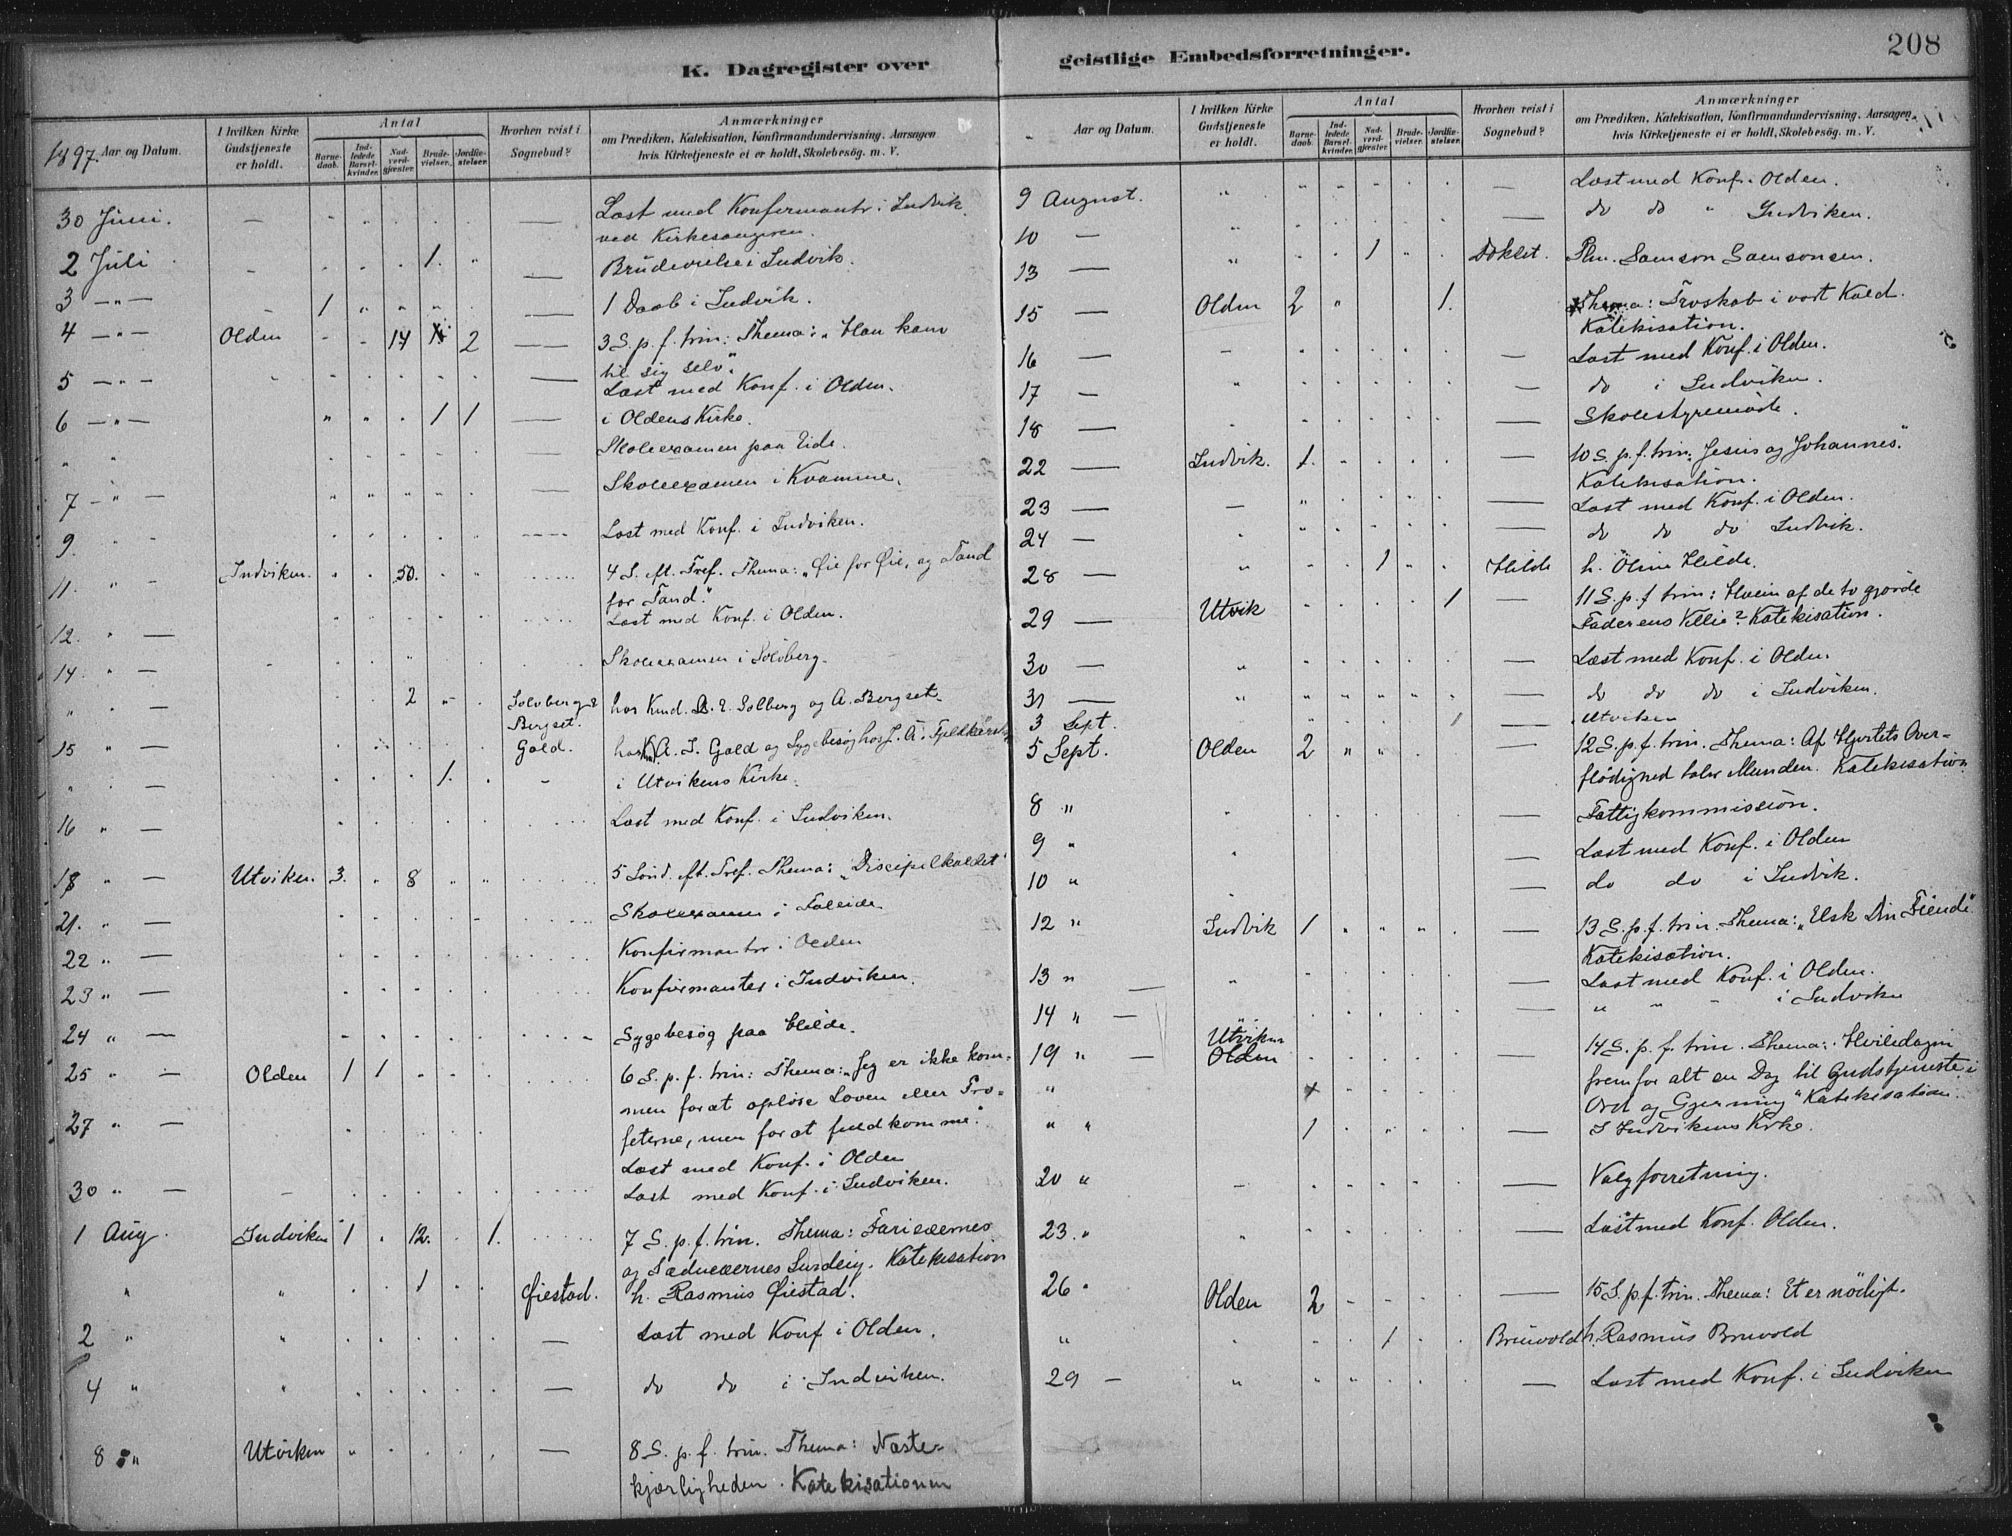 K. Dagregister over geistlige Embedsforretninger.
208
1897. Aar og Datum.
I hvilken Kirke Gudstjeneste er holdt.
Antal
Barnedaab.
Indledede Barselkvinder.
Nadverdgjæster.
Brudevielser.
Jordfæstelser.
Hvorhen reist i Sognebud?
Anmærkninger
om Prædiken, Katekisation, Konfirmandundervisning. Aarsagen
hvis Kirketjeneste ei er holdt, Skolebesøg. m. V.
30 Juni. — Læst med Konfirmanter i Indvik
ved Kirkesangeren.
2 Juli 1. — Brudevielse i Indvik.
3 —„— 1 — 1 Daab i Indvik.
4 —„— Olden 14 2 — 3 S. p. f. trin: Thema: „Han kom
til sig selv."
5 —„— — Læst med Konf. i Olden.
6 —„— 1 1 — i Oldens Kirke.
„ „ Skoleexamen paa Eide.
7 — „ — Skoleexamen i Kvamme.
9. Læst med Konf. i Indviken.
11. „ — Indviken. 50. 4 S. eft. Tref. Thema: „Øie for Øie, og Tand
for Tand."
12. „ — Læst med Konf. i Olden.
14. „ — Skoleexamen i Solvberg.
„ „ — 2 Solvberg &
Bergset. hos Kmd. A. E. Solberg og A. Bergset.
15 „ — Gald. A. J. Gald og Sygebesøg hos J. A.
„ „ — 1. i Utvikens Kirke.
16 „ — Læst med Konf. i Indviken.
18 „ — Utviken. 3. 8 5 Sønd. eft. Tref. Thema: „Discipelkaldet"
21. „ — Skoleexamen i Faleide
22 „ — Konfirmanter i Olden
23 „ — Konfirmanter i Indviken.
24 „ — Sygebesøg paa Hilde.
25 „ — Olden 1 1 6 S. p. f. trin: Thema: „Jeg er ikke kom-
men for at opløse Loven eller Pro-
feterne, men for at fuldkomme."
27 „ — Læst med Konf. i Olden
30 „ — Læst med Konf. i Indviken.
1 Aug. Indviken 1 12. 1. 7 S. p. f. trin. Thema: Farisæernes
og Saducæernes Surdeig. Katekisation
„ „ 1 Øiestad. h. Rasmus Øiestad.
2 „ „ — Læst med Konf i Olden.
4 „ „ — do do i Indviken.
8 „ Utviken „ — 8 S. p. f. trin. Thema: Næste-
kjærligheden. Katekisationen
Aar og Datum.
I hvilken Kirke Gudstjeneste er holdt.
Antal
Barnedaab.
Indledede Barselkvinder.
Nadverdgjæster.
Brudevielser.
Jordfæstelser.
Hvorhen reist i Sognebud?
Anmærkninger
om Prædiken, Katekisation, Konfirmandundervisning. Aarsagen
hvis Kirketjeneste ei er holdt, Skolebesøg. m. V.
9 August. „ — Læst med Konf. i Olden.
10 — „ — do do „ Indviken.
13 — „ 1 Døklet. Plm. Samson Samsonsen.
15 — Olden 2 „ 1. Thema: Troskab i vort Kald.
Katekisation.
16 — — Læst med Konf. i Olden.
17 — „ — do i Indviken.
18 — — Skolestyremøde.
22 — Indvik. 1. — 10 S. p. f. trin: Jesus og Johannes."
Katekisation.
23 — — — Læst med Konf. i Olden.
24 — „ — do do do Indvik.
28 — „ 1 Hilde h. Oline Hilde.
29 — Utvik 1 — 11 S. p. f. trin: Hvem af de to gjorde
Faderens Villie? Katekisation.
30 — „ — Læst med Konf. i Olden.
31 — „ — do do do i Indviken.
3 Sept. 1 Utviken
5 Sept. Olden 2 „ „ — 12 S. p. f. trin. Thema: Af Hjertets Over-
flødighed taler Munden. Katekisation
8 „ — Fattigkommission.
9 „ — Læst med Konf. i Olden
10 „ — do do i Indvik.
12 „ Indvik 1 — 13 S. p. f. trin. Thema: „Elsk Din Fiende"
Katekisation.
13 „ — Læst med Konf. i Olden.
14 „ — — „ „ „ i Indviken
19 „ — Utviken
Olden — 14 S. p. f. trin. Thema: Hviledagen
fremfor alt en Dag til Gudstjeneste i
Ord og Gjerning" Katekisation.
„ „ 1 — I Indvikens Kirke.
20 „ — — Valgforretning.
23 „ — Læst med Konf. Olden.
26 „ Olden 2 — 15 S. p. f. trin. Thema: Et er nødigt.
„ 1 Bruvold h. Rasmus Bruvold
29 — „ — Læst med Konf. i Indviken